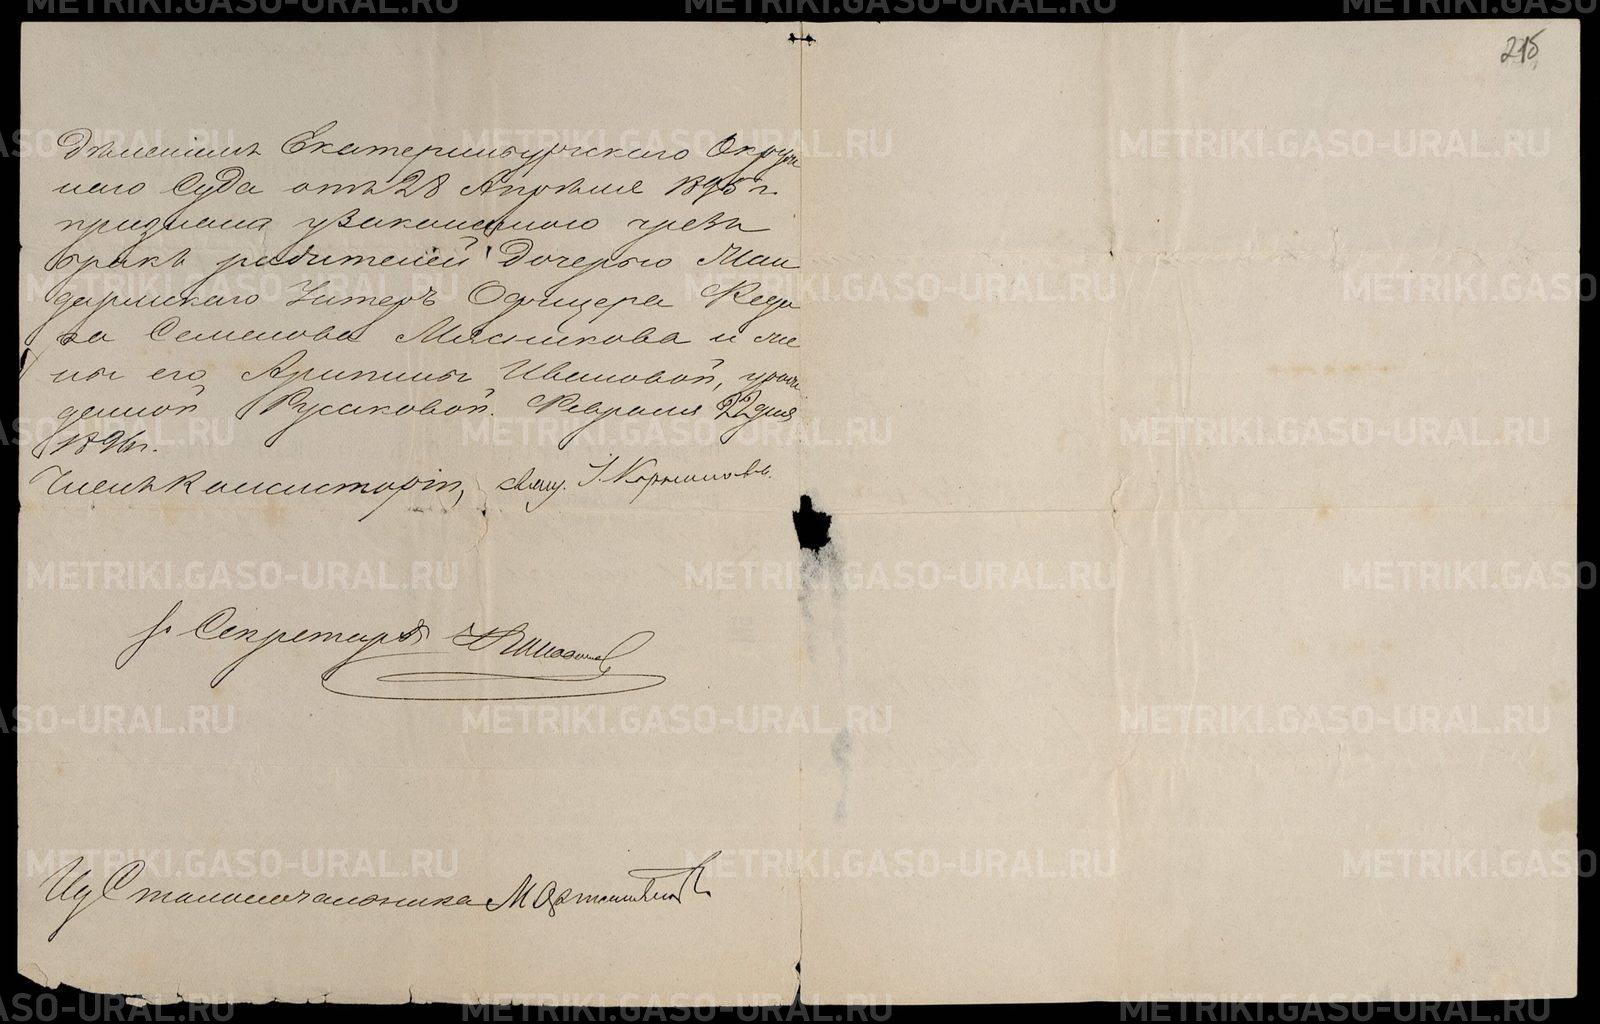 215
дѣленіемъ Екатеринбургскаго Окруж
наго Суда отъ 28 Апрѣля 1895 г.
признана узаконенною чрезъ
бракъ родителей дочерью Жан
дармскаго Унтеръ Офицера Федо
ра Семенова Мясникова и же
ны его Агрипины Ивановой, урож
денной Русаковой. Февраля 22 дня
1896 г.
Членъ Консисторіи, Свящ. І.
Секретарь
Столоначальника М
METRIKI.GASO-URAL.RU